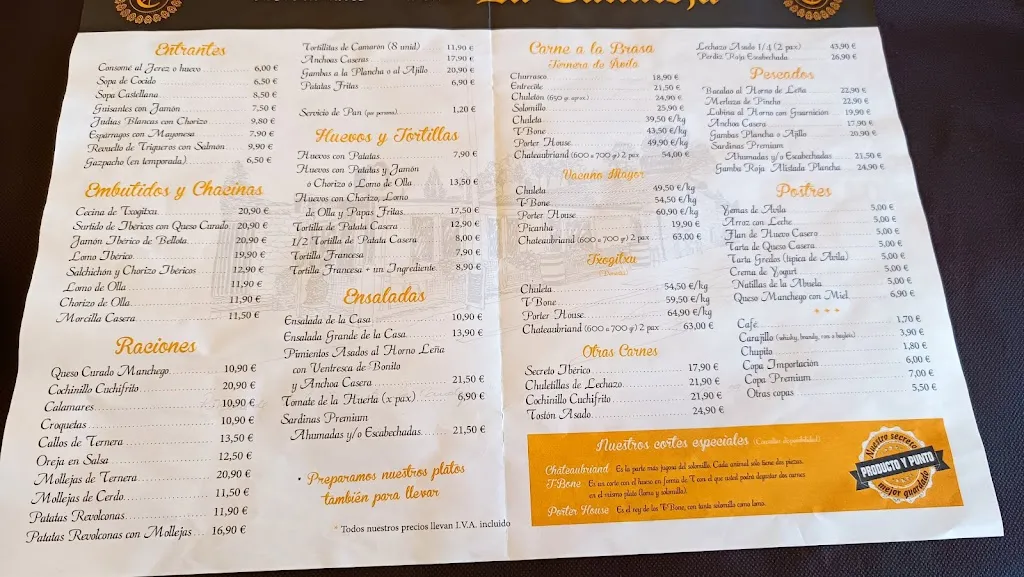 Entrantes
Consomé al Jerez o huevo 6,00 €
Sopa de Cocido 6,50 €
Sopa Castellana 8,50 €
Guisantes con Jamón 7,50 €
Judías Blancas con Chorizo 9,80 €
Espárragos con Mayonesa 7,90 €
Revuelto de Trigueros con Salmón 9,90 €
Gazpacho (en temporada) 6,50 €
Embutidos y Chacinas
Cecina de Txogitxu 20,90 €
Surtido de Ibéricos con Queso Curado 20,90 €
Jamón Ibérico de Bellota 20,90 €
Lomo Ibérico 19,90 €
Salchichón y Chorizo Ibéricos 12,90 €
Lomo de Olla 11,90 €
Chorizo de Olla 11,90 €
Morcilla Casera 11,50 €
Raciones
Queso Curado Manchego 10,90 €
Cochinillo Cuchifrito 20,90 €
Calamares 10,90 €
Croquetas 10,90 €
Callos de Ternera 13,50 €
Oreja en Salsa 12,50 €
Mollejas de Ternera 20,90 €
Mollejas de Cerdo 11,50 €
Patatas Revolconas 11,90 €
Patatas Revolconas con Mollejas 16,90 €
Tortillitas de Camarón (8 unid) 11,90 €
Anchoas Caseras 17,90 €
Gambas a la Plancha o al Ajillo 20,90 €
Patatas Fritas 6,90 €
Servicio de Pan (por persona) 1,20 €
Huevos y Tortillas
Huevos con Patatas 7,90 €
Huevos con Patatas y Jamón
o Chorizo o Lomo de Olla 13,50 €
Huevos con Chorizo, Lomo
de Olla y Papas Fritas 17,50 €
Tortilla de Patata Casera 12,90 €
1/2 Tortilla de Patata Casera 8,00 €
Tortilla Francesa 7,90 €
Tortilla Francesa + un Ingrediente 8,90 €
Ensaladas
Ensalada de la Casa 10,90 €
Ensalada Grande de la Casa 13,90 €
Pimientos Asados al Horno Leña
con Ventresca de Bonito
y Anchoa Casera 21,50 €
Tomate de la Huerta (x pax) 6,90 €
Sardinas Premium
Ahumadas y/o Escabechadas 21,50 €
• Preparamos nuestros platos
también para llevar
* Todos nuestros precios llevan I.V.A. incluido
Carne a la Brasa
Ternera de Ávila
Churrasco 18,90 €
Entrecôte 21,50 €
Chuletón (650 gr. aprox.) 24,90 €
Solomillo 25,90 €
Chuleta 39,50 €/kg
T-Bone 43,50 €/kg
Porter House 49,90 €/kg
Chateaubriand (600 a 700 gr) 2 pax 54,00 €
Vacuno Mayor
Chuleta 49,50 €/kg
T-Bone 54,50 €/kg
Porter House 60,90 €/kg
Picanha 19,90 €
Chateaubriand (600 a 700 gr) 2 pax 63,00 €
Txogitxu
Chuleta 54,50 €/kg
T-Bone 59,50 €/kg
Porter House 64,90 €/kg
Chateaubriand (600 a 700 gr) 2 pax 63,00 €
Otras Carnes
Secreto Ibérico 17,90 €
Chuletillas de Lechazo 21,90 €
Cochinillo Cuchifrito 21,90 €
Tostón Asado 24,90 €
Lechazo Asado 1/4 (2 pax) 43,90 €
Perdiz Roja Escabechada 26,90 €
Pescados
Bacalao al Horno de Leña 22,90 €
Merluza de Pincho 22,90 €
Lubina al Horno con Guarnición 19,90 €
Anchoa Casera 17,90 €
Gambas Plancha o Ajillo 20,90 €
Sardinas Premium
Ahumadas y/o Escabechadas 21,50 €
Gamba Roja Alistada Plancha 24,90 €
Postres
Yemas de Ávila 5,00 €
Arroz con Leche 5,00 €
Flan de Huevo Casero 5,00 €
Tarta de Queso Casera 5,00 €
Tarta Gredos (típica de Ávila) 5,00 €
Crema de Yogurt 5,00 €
Natillas de la Abuela 5,00 €
Queso Manchego con Miel 6,90 €
Café 1,70 €
Carajillo (whisky, brandy, ron o bayleis) 3,90 €
Chupito 1,80 €
Copa Importación 6,00 €
Copa Premium 7,00 €
Otras copas 5,50 €
Nuestros cortes especiales (Consultar disponibilidad)
Châteaubriand Es la parte más jugosa del solomillo. Cada animal solo tiene dos piezas.
T-Bone Es un corte con el hueso en forma de T con el que usted podrá degustar dos carnes
en el mismo plato (lomo y solomillo).
Porter House Es el rey de los T-Bone, con tanto solomillo como lomo.
Nuestro secreto
PRODUCTO Y PUNTO
mejor guardado